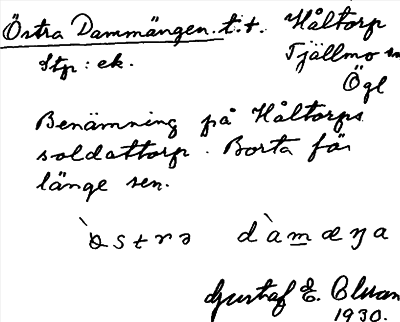 Östra Dammängen t.t. Håltorp
Stp: ek. Tjällmo sn
Ögl
Benämning på Håltorps
soldattorp. Borta för
länge sen.
`ɵstrə dàmæŋa
Gustaf E.
1930.